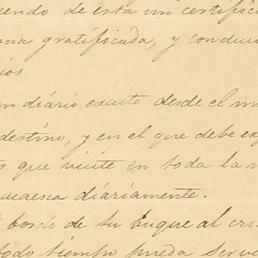 iendo de esta un certific
ana gratificada, y conduci
ios
un diário exacto desde el m
destino, y en el que debe ex
s que visite en toda la n
curesca diáriamente.
bordo de su buque al cru
todo tiempo pueda serv